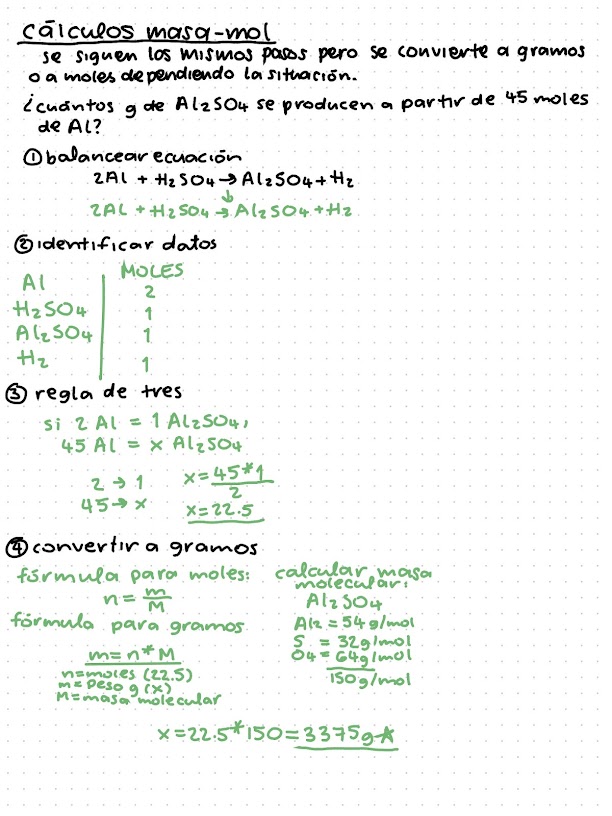 cálculos masa-mol
se siguen los mismos pasos pero se convierte a gramos
o a moles dependiendo la situación.
¿cuántos g de Al₂SO₄ se producen a partir de 45 moles
de Al?
① balancear ecuación
2Al + H₂SO₄ → Al₂SO₄ + H₂
↓
2Al + H₂SO₄ → Al₂SO₄ + H₂
② identificar datos
MOLES
Al 2
H₂SO₄ 1
Al₂SO₄ 1
H₂ 1
③ regla de tres
si 2 Al = 1 Al₂SO₄,
45 Al = x Al₂SO₄
2 → 1
45 → x
x = 45*1
2
x = 22.5
④ convertir a gramos
fórmula para moles:
n = m
M
fórmula para gramos
m = n*M
n = moles (22.5)
m = peso g (x)
M = masa molecular
calcular masa
molecular:
Al₂SO₄
Al₂ = 54g/mol
S = 32g/mol
O₄ = 64g/mol
150g/mol
x = 22.5*150 = 3375g